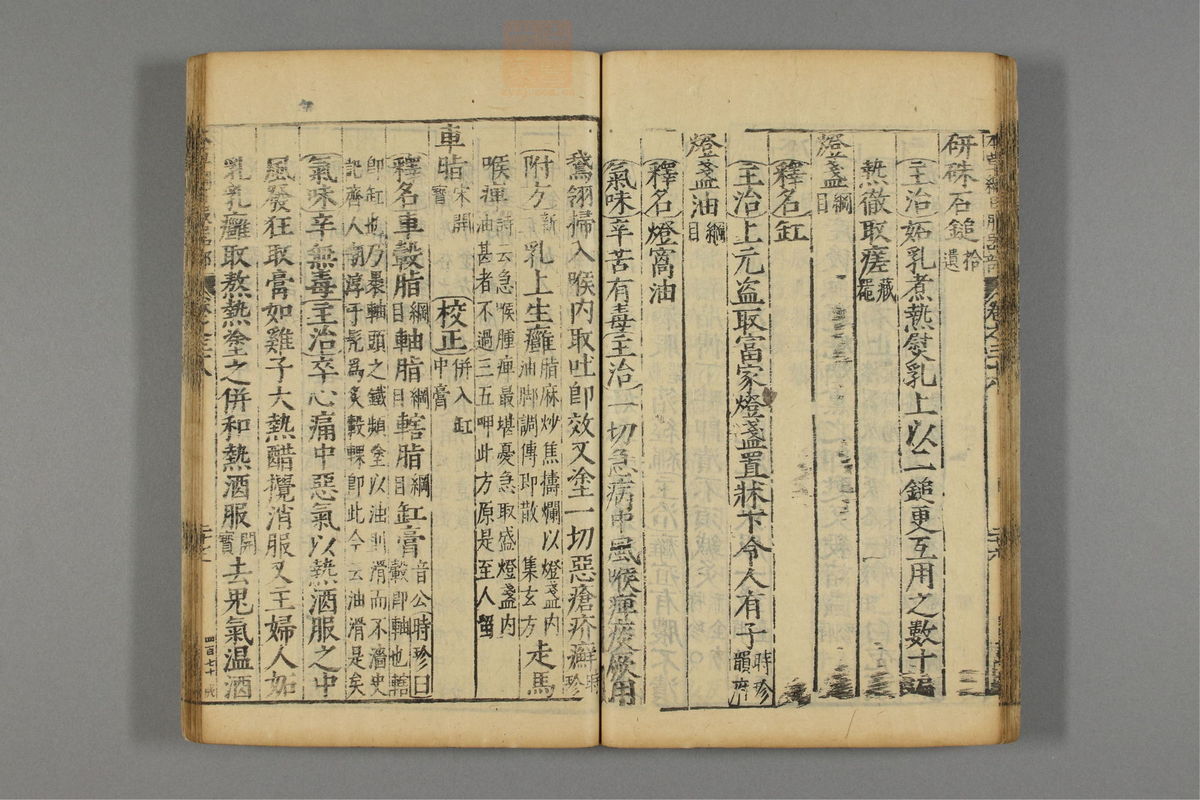 研硃石鎚拾遺
主治妬乳煮熱熨乳上以二鎚更互用之數十遍
熱徹取瘥藏器
燈盞綱目
釋名缸
主治上元盗取富家燈盞置牀下令人有子時珍韻府
燈盞油綱目
釋名燈窩油
氣味辛苦有毒主治一切急病中風喉痺痰厥用
鵞翎掃入喉内取吐卽效又塗一切惡瘡疥癬時珍
附方新乳上生癰脂麻炒焦擣爛以燈盞内油脚調傅卽散集玄方走馬
喉痺詩云急喉腫痺最堪憂急取盛燈盞内油甚者不過三五呷此方原是至人留
車脂宋開寶校正併入缸中膏
釋名車轂脂綱目軸脂綱目轄脂綱目缸膏音公時珍曰轂卽輞也轄
卽缸也乃裹軸頭之鐵頻塗以油則滑而不濇史記齊人嘲淳于髡爲炙轂輠卽此今云油滑是矣
氣味辛無毒主治卒心痛中惡氣以熱酒服之中
風發狂取膏如雞子大熱醋攪消服又主婦人妬
乳乳癰取熬熱塗之併和熱酒服開寶去鬼氣温酒